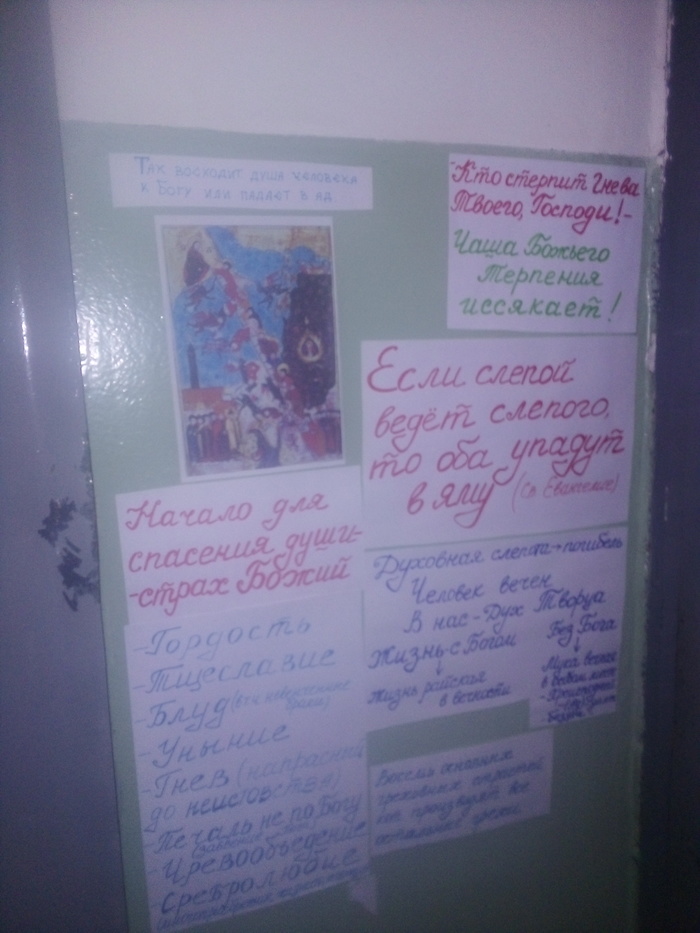 Так восходит душа человека
к Богу или падает в ад
"Кто стерпит Гнева
Твоего, Господи!-
Чаша Божьего
Терпения
иссякает!
Если слепой
ведёт слепого,
то оба упадут
в яму (Св Евангелие)
Начало для
спасения души-
-страх Божий
-Гордость
-Тщеславие
-Блуд (
браки)
-Уныние
-Гнев (напрасный
до неистовства)
-Печаль не по Богу
-Чревообъедение
-Сребролюбие
Духовная слепота→погибель
Человек вечен
В нас-Дух Творца
Жизнь-с Богом
↓
Жизнь райская
в вечности
Без Бога
↓
Мука вечная
Восемь основных
греховных страстей
производят все
остальные грехи